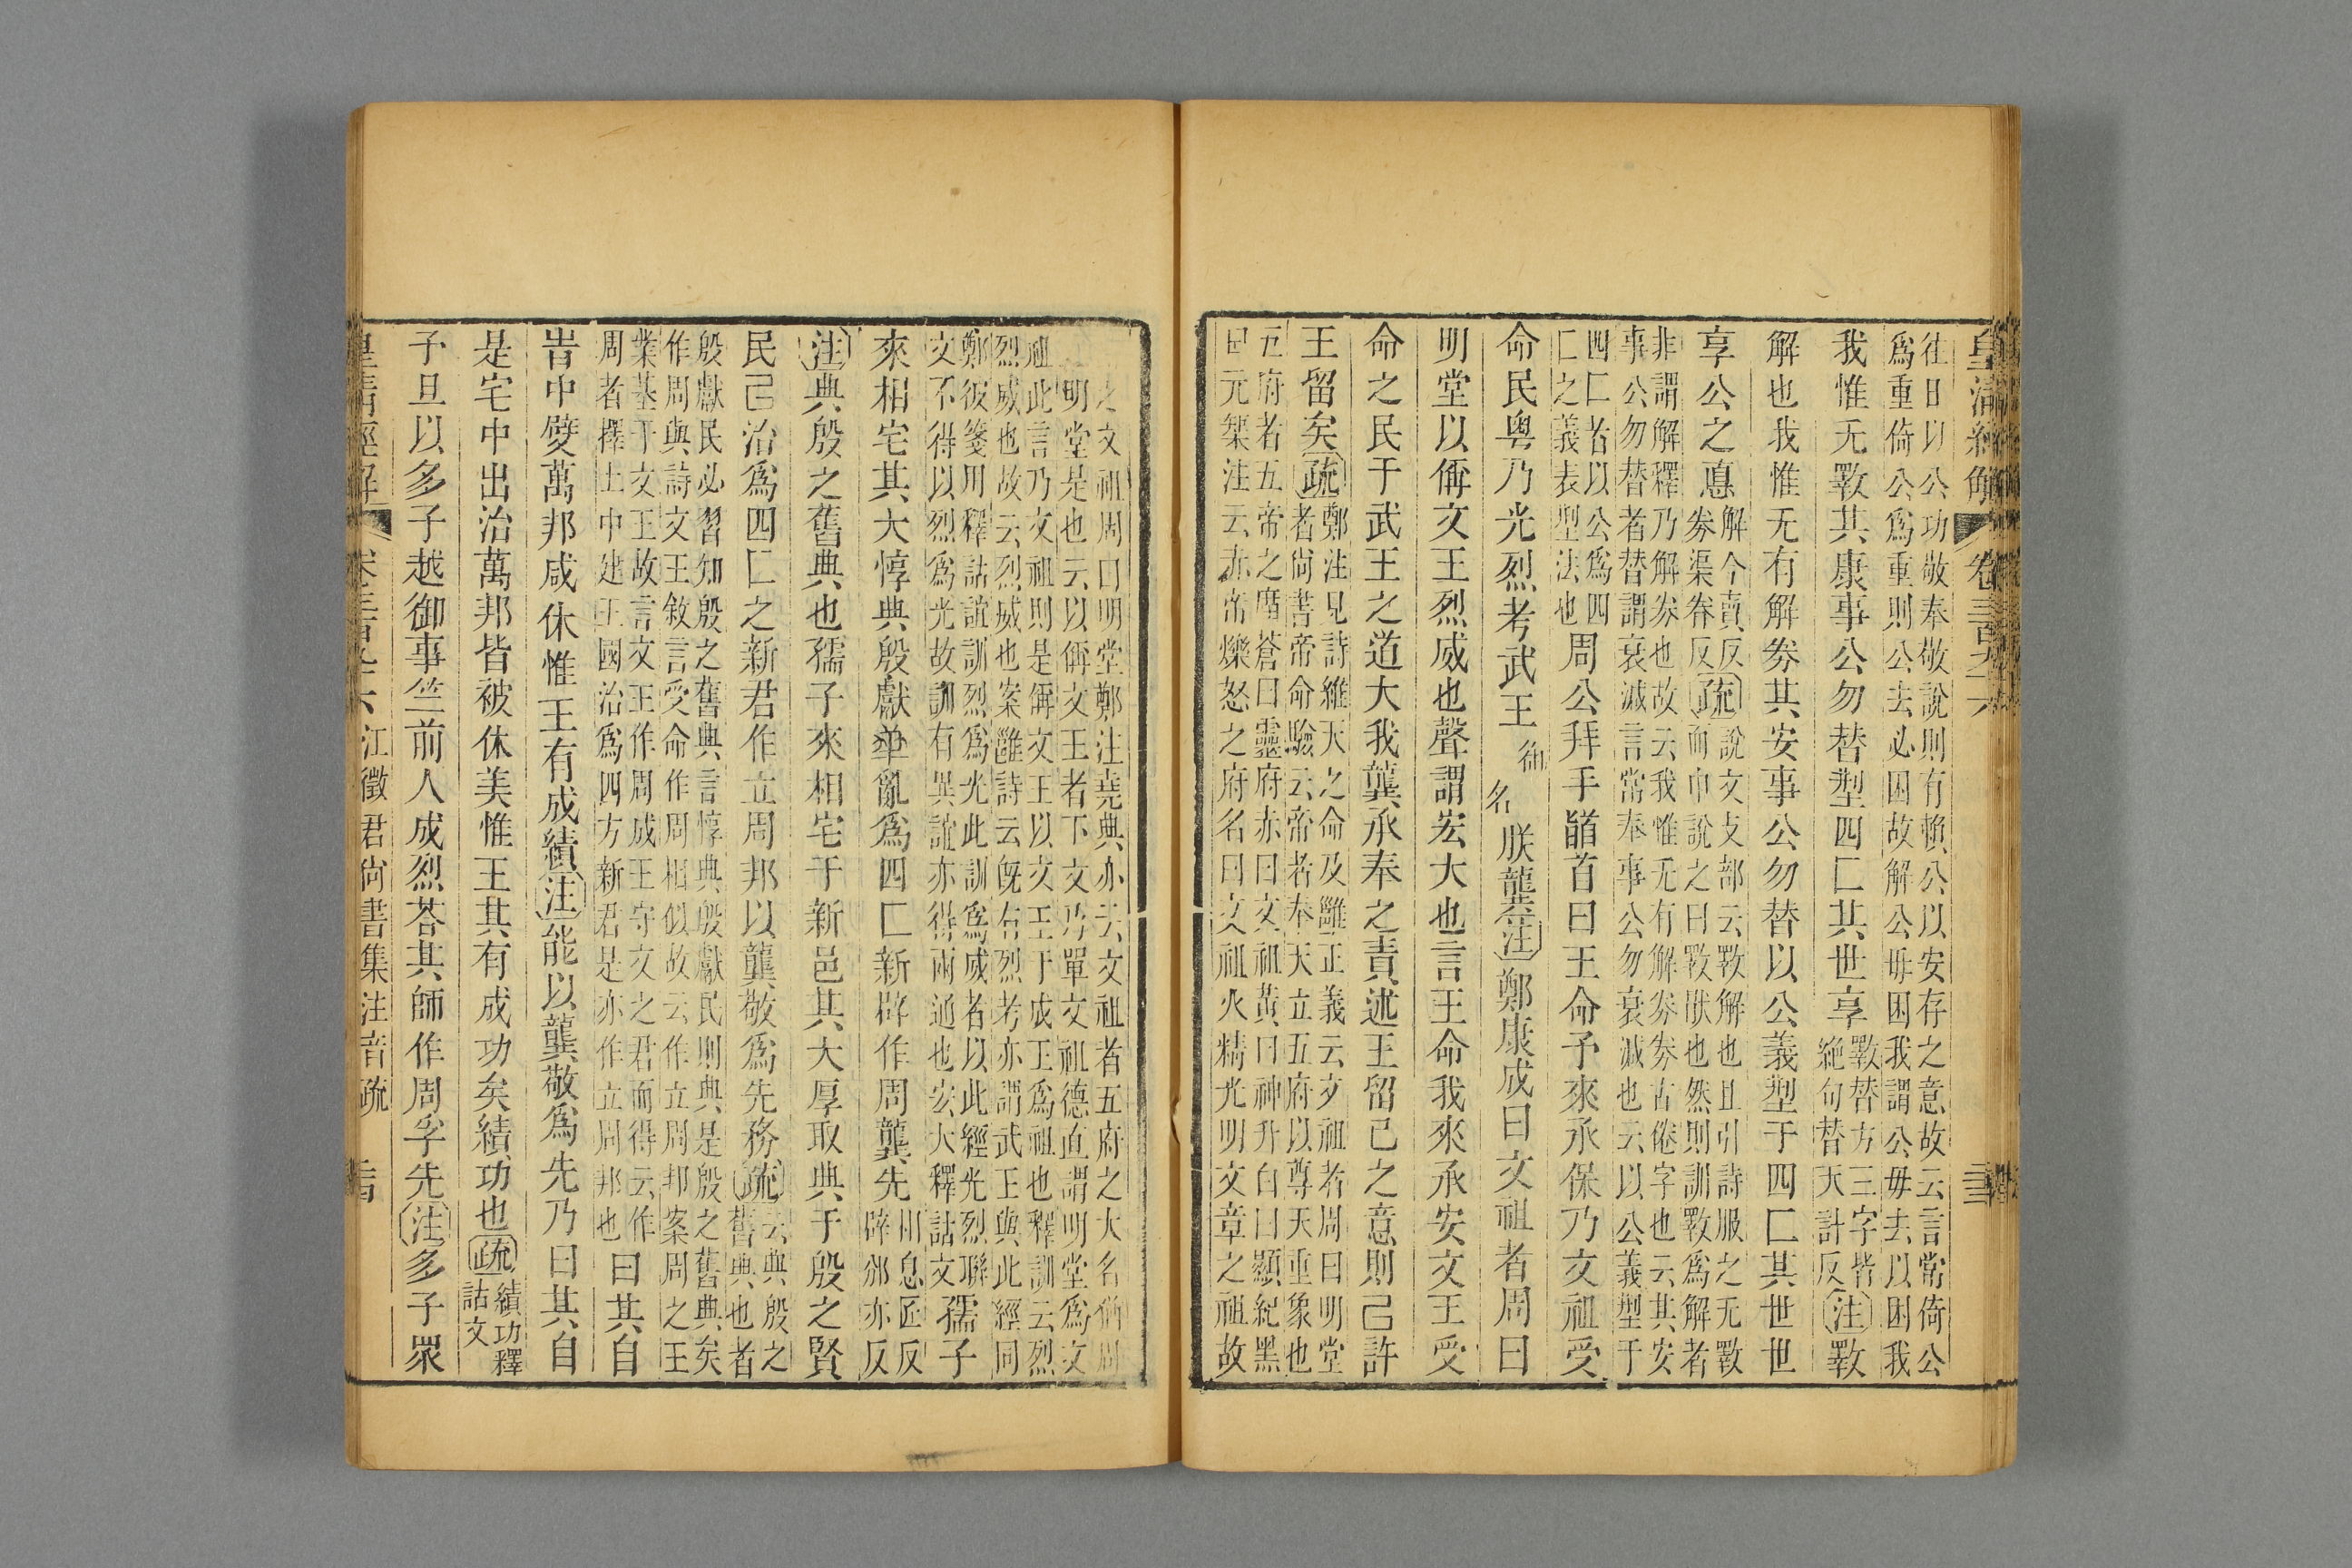 皇清經解 卷三百九十六
往日以公功敬奉敬說則有賴公以安存之意故云言常倚公
爲重倚公爲重則公去必困故解公毋困我謂公毋去以困我
我惟无斁其康事公勿替型四匚其世享
斁替方三字皆
絶句替天計反
注斁
解也我惟无有解劵其安事公勿替以公義型于四匚其世世
享公之悳
解今賣反
劵渠眷反
疏
說文攴部云斁解也且引詩服之无斁
而申說之曰斁猒也然則訓斁爲解者
非謂解釋乃解劵也故云我惟无有解劵劵古倦字也云其安
事公勿替者替謂衰滅言常奉事公勿衰滅也云以公義型于
四匚者以公爲四
匚之義表型法也
周公拜手䭫首曰王命予來承保乃文祖受
命民粤乃光烈考武王
朕龏注鄭康成曰文祖者周曰
明堂以偁文王烈威也聲謂宏大也言王命我來承安文王受
命之民于武王之道大我龔承奉之責述王留己之意則己許
王留矣疏
鄭注見詩維天之命及雝正義云文祖者周曰明堂
者尙書帝命驗云帝者奉天立五府以尊天重象也
五府者五帝之廟蒼曰靈府赤曰文祖黃曰神升白曰顯紀黑
曰元榘注云赤帝熛怒之府名曰文祖火精光明文章之祖故
之文祖周曰明堂鄭注堯典亦云文祖者五府之大名猶周
明堂是也云以偁文王者下文乃單文祖德直謂明堂爲文
祖此言乃文祖則是偁文王以文王于成王爲祖也釋訓云烈
烈威也故云烈威也案雝詩云旣右烈考亦謂武王與此經同
鄭彼箋用釋詁誼訓烈爲光此訓爲威者以此經光烈聯
文不得以烈爲光故訓有異誼亦得兩通也宏大釋詁文
孺子
來相宅其大惇典殷獻𠦑亂爲四匚新辟作周龔先
注典殷之舊典也孺子來相宅于新邑其大厚取典于殷之賢
民己治爲四匚之新君作立周邦以龔敬爲先務疏
云典殷之
舊典也者
殷獻民必習知殷之舊典言惇典殷獻民則典是殷之舊典矣
作周與詩文王敘言受命作周相似故云作立周邦案周之王
業基于文王故言文王作周成王守文之君而得云作
周者擇土中建王國治爲四方新君是亦作立周邦也
曰其自
旹中嬖萬邦咸休惟王有成績注能以龔敬爲先乃曰其自
是宅中出治萬邦皆被休美惟王其有成功矣績功也疏
績功釋
詁文
予旦以多子越御事竺前人成烈荅其師作周孚先注多子眾
皇清經解 卷三百九十六 江徵君尙書集注音疏